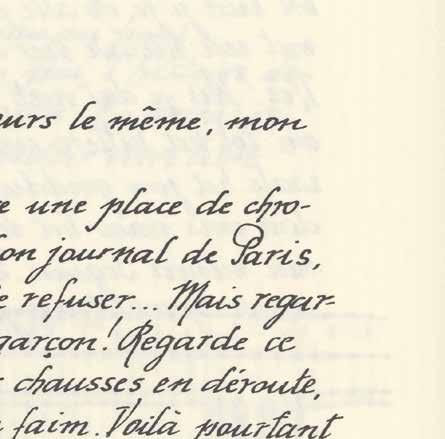 urs le même, mon
une place de chro-
on journal de Paris,
refuser... Mais regar-
garçon! Regarde ce
chausses en déroute,
faim. Voilà pourtant